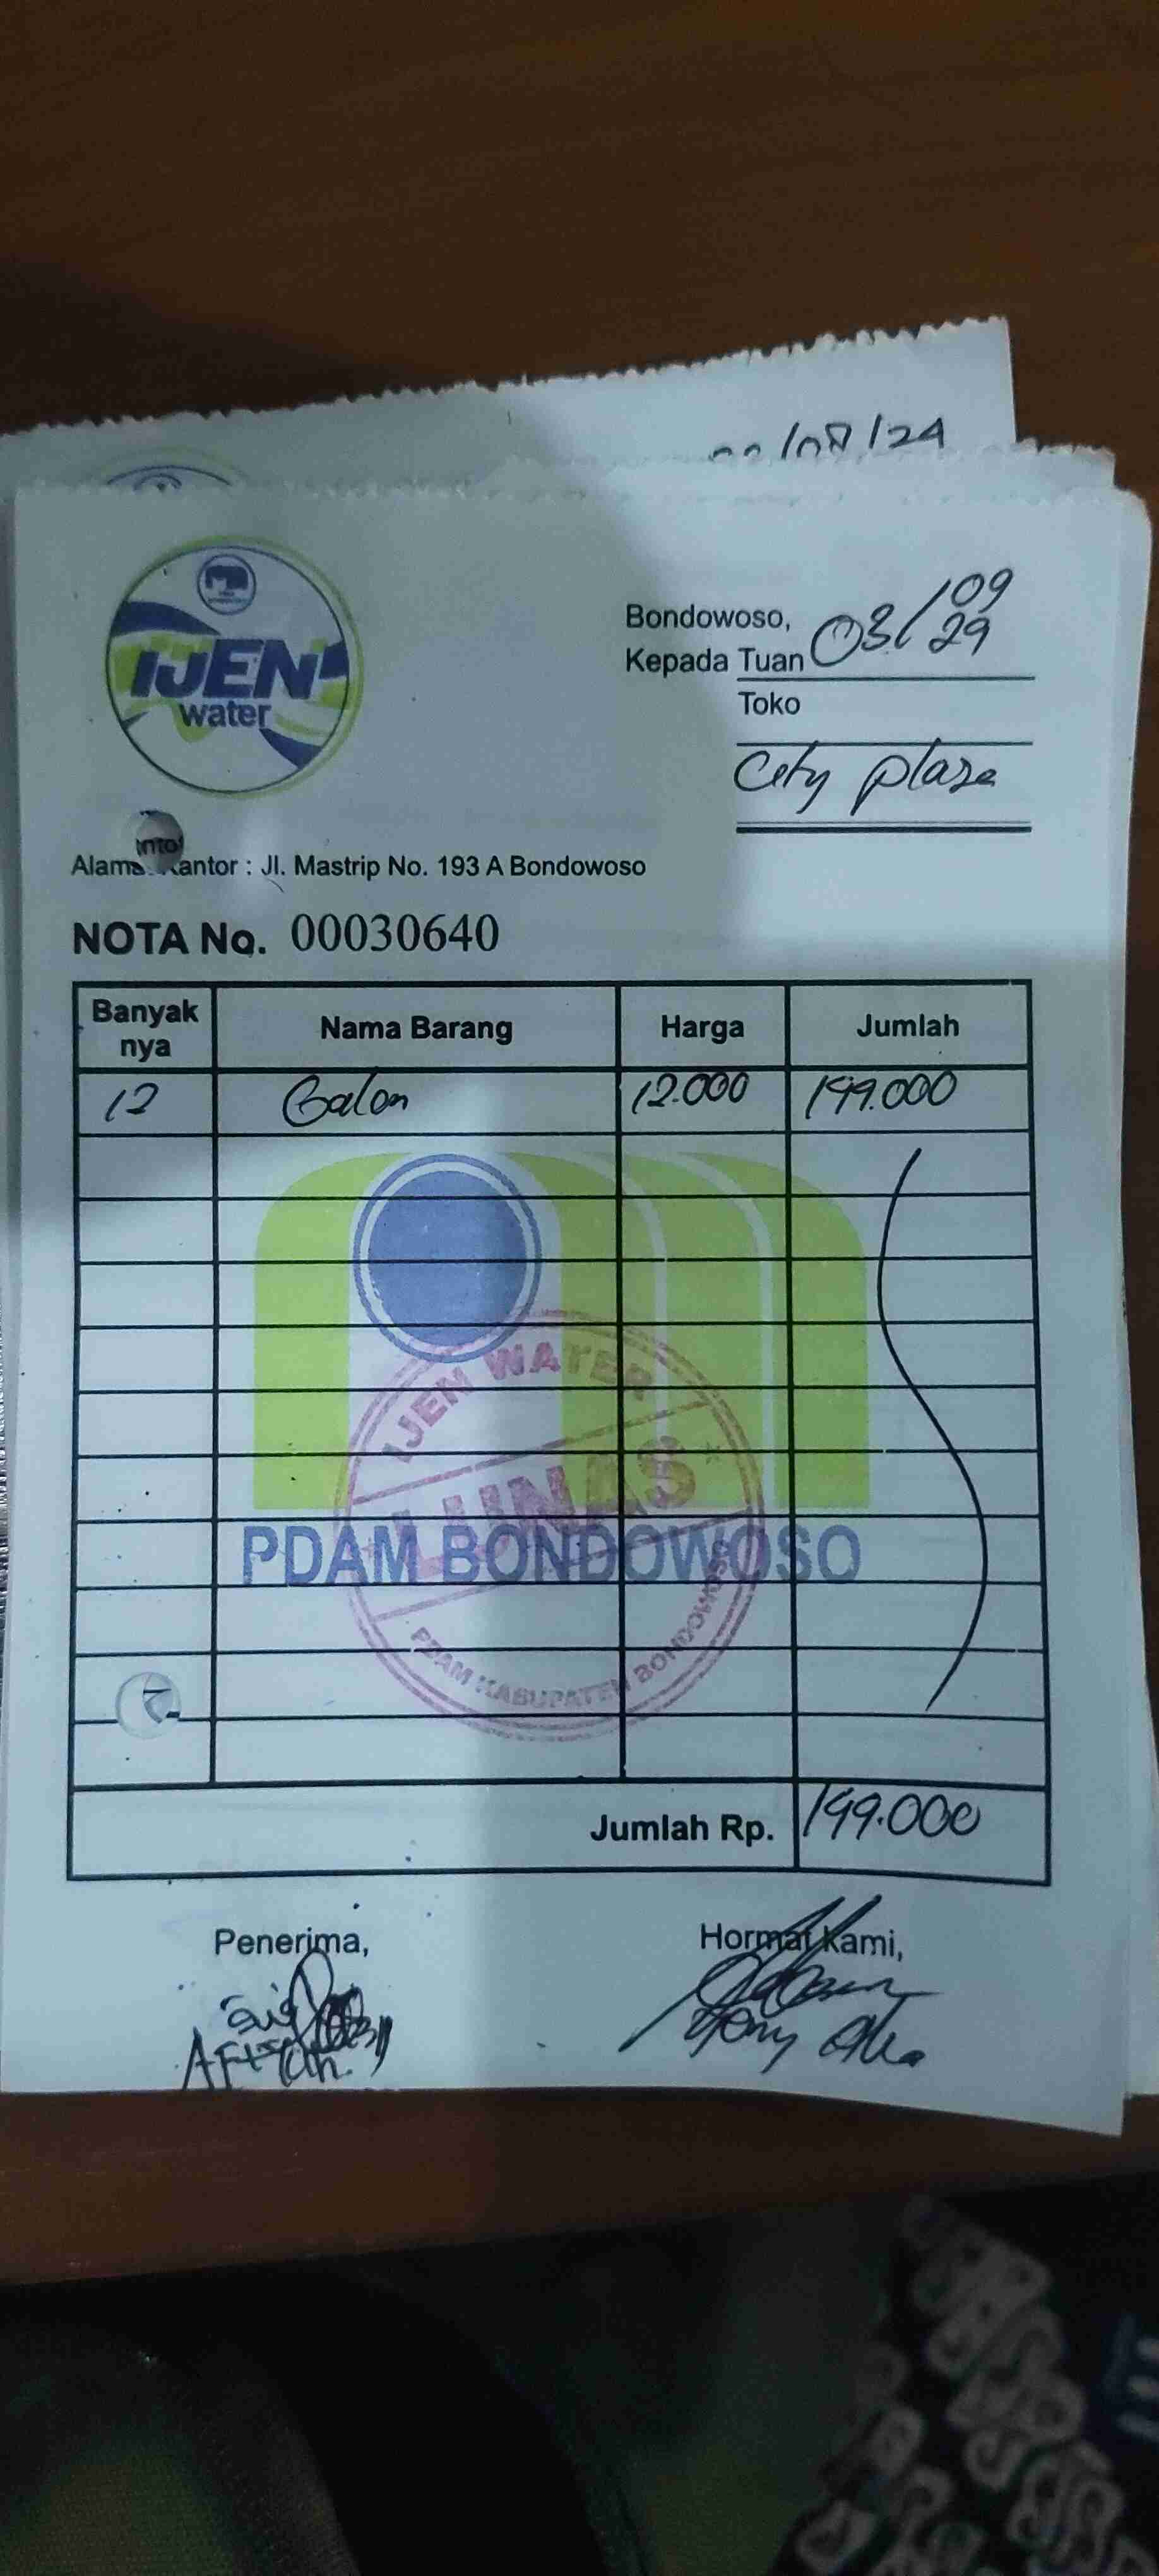 /08/24
IJEN
water
Bondowoso, 03/09
24
Kepada Tuan
Toko
City plaza
Alamat Kantor : Jl. Mastrip No. 193 A Bondowoso
NOTA No. 00030640
Banyak nya Nama Barang Harga Jumlah
12 Galon 12.000 144.000
IJEN WATER
LUNAS
PDAM BONDOWOSO
PDAM KABUPATEN BONDOWOSO
Jumlah Rp. 144.000
Penerima, Hormat Kami,